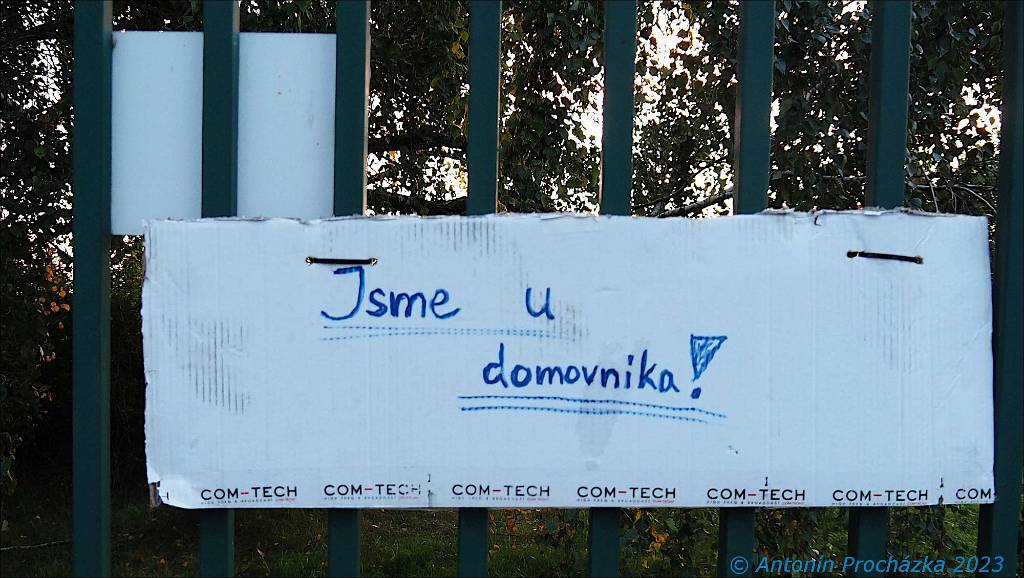 Jsme u
domovnika!
COM-TECH COM-TECH COM-TECH COM-TECH COM-TECH COM-TECH COM
© Antonín Procházka 2023